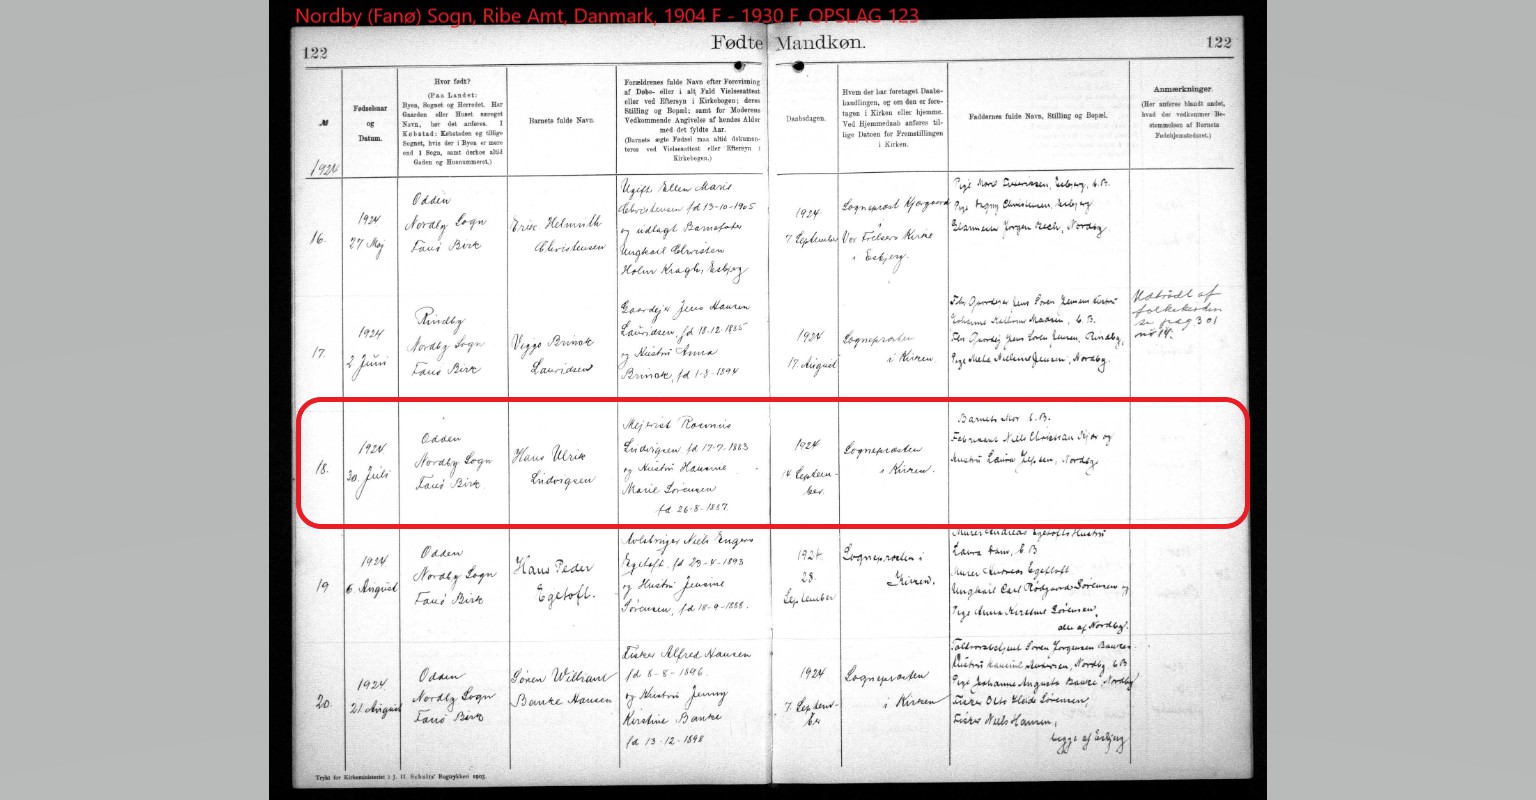 Nordby (Fanø) Sogn, Ribe Amt, Danmark, 1904 F - 1930 F, OPSLAG 123
122
Fødte Mandkøn.
122
№
1924
Fødselsaar
og
Datum.
Hvor født?
(Paa Landet:
Byen, Sognet og Herredet. Har
Gaarden eller Huset særeget
Navn, bør det anføres. I
Købstad: Købstaden og tillige
Sognet, hvis der i Byen er mere
end 1 Sogn, samt derhos altid
Gaden og Husnummeret.)
Barnets fulde Navn.
Forældrenes fulde Navn efter Forevisning
af Døbe- eller i alt Fald Vielsesattest
eller ved Eftersyn i Kirkebogen; deres
Stilling og Bopæl; samt for Moderens
Vedkommende Angivelse af hendes Alder
med det fyldte Aar.
(Barnets ægte Fødsel maa altid dokumen-
teres ved Vielsesattest eller Eftersyn i
Kirkebogen.)
Daabsdagen.
Hvem der har foretaget Daabs-
handlingen, og om den er fore-
tagen i Kirken eller hjemme.
Ved Hjemmedaab anføres til-
lige Datoen for Fremstillingen
i Kirken.
Faddernes fulde Navn, Stilling og Bopæl.
Anmærkninger.
(Her anføres blandt andet,
hvad der vedkommer Be-
stemmelsen af Barnets
Fødehjemstedsret.)
16.
1924
27 Maj
Odden
Nordby Sogn
Fanø Birk
Erik Helmuth
Christensen
Ugift Ellen Marie
Christensen fd 13-10-1905
og udlagt Barnefader
Ungkarl Christen
Holm Kragh, Esbjerg
1924
7 September
Sognepræst Kjærgaard
i
Vor Frelsers Kirke
i Esbjerg.
Pige Esbjerg, b.B.
Pige Christensen, Esbjerg
Jørgen Nordby.
17.
1924
2 Juni
Rindby
Nordby Sogn
Fanø Birk
Viggo Brinck
Lauridsen
Gaardejer Jens Hansen
Lauridsen, fd 18-12-1885
og Hustru Anna
Brinck, fd 1-8-1894
1924
17. August
Sognepræsten
i Kirken.
Jens Søren Jensens Hustru
Johanne Kathrine Madsen, b.B.
Jens Søren Jensen, Rindby,
Pige Meta Nielsine Jensen, Nordby.
Udtrådt af
folkekirken
se pag 301
nr 14.
18.
1924
30. Juli
Odden
Nordby Sogn
Fanø Birk.
Hans Ulrik
Ludvigsen
Mejerist Rasmus
Ludvigsen fd 17-7-1883
og Hustru Hansine
Marie Sørensen
fd 26-8-1887.
1924
14. Septem-
ber.
Sognepræsten
i Kirken.
Barnets Mor b.B.
Fabrikant Niels Christian Kjær og
Hustru Laura Jepsen, Nordby
19
1924
6. August
Odden
Nordby Sogn
Fanø Birk
Hans Peder
Egetoft.
Avlsbruger Niels
Egetoft, fd 23-4-1893
og Hustru Jensine
Sørensen, fd 18-9-1888.
1924.
28.
September
Sognepræsten i
Kirken.
Murer Andreas Egetofts Hustru
Laura b.B
Murer Andreas Egetoft
Ungkarl Carl Rødgaard Sørensen og
Pige Anna Kirstine Sørensen,
alle af Nordby.
20.
1924
21. August
Odden
Nordby Sogn
Fanø Birk
Søren William
Banke Hansen
Fisker Alfred Hansen
fd 8-8-1896.
og Hustru Jenny
Kirstine Banke
fd 13-12-1898
1924
7. Septem-
ber
Sognepræsten
i Kirken
Søren Jørgensen Bankes
Hustru Andersen, Nordby, b.B
Pige Johanne Augusta Banke, Nordby
Fisker Otto Sørensen,
Fisker Niels Hansen,
begge af Esbjerg
Trykt for Kirkeministeriet i J. H. Schultz' Bogtrykkeri 1903.